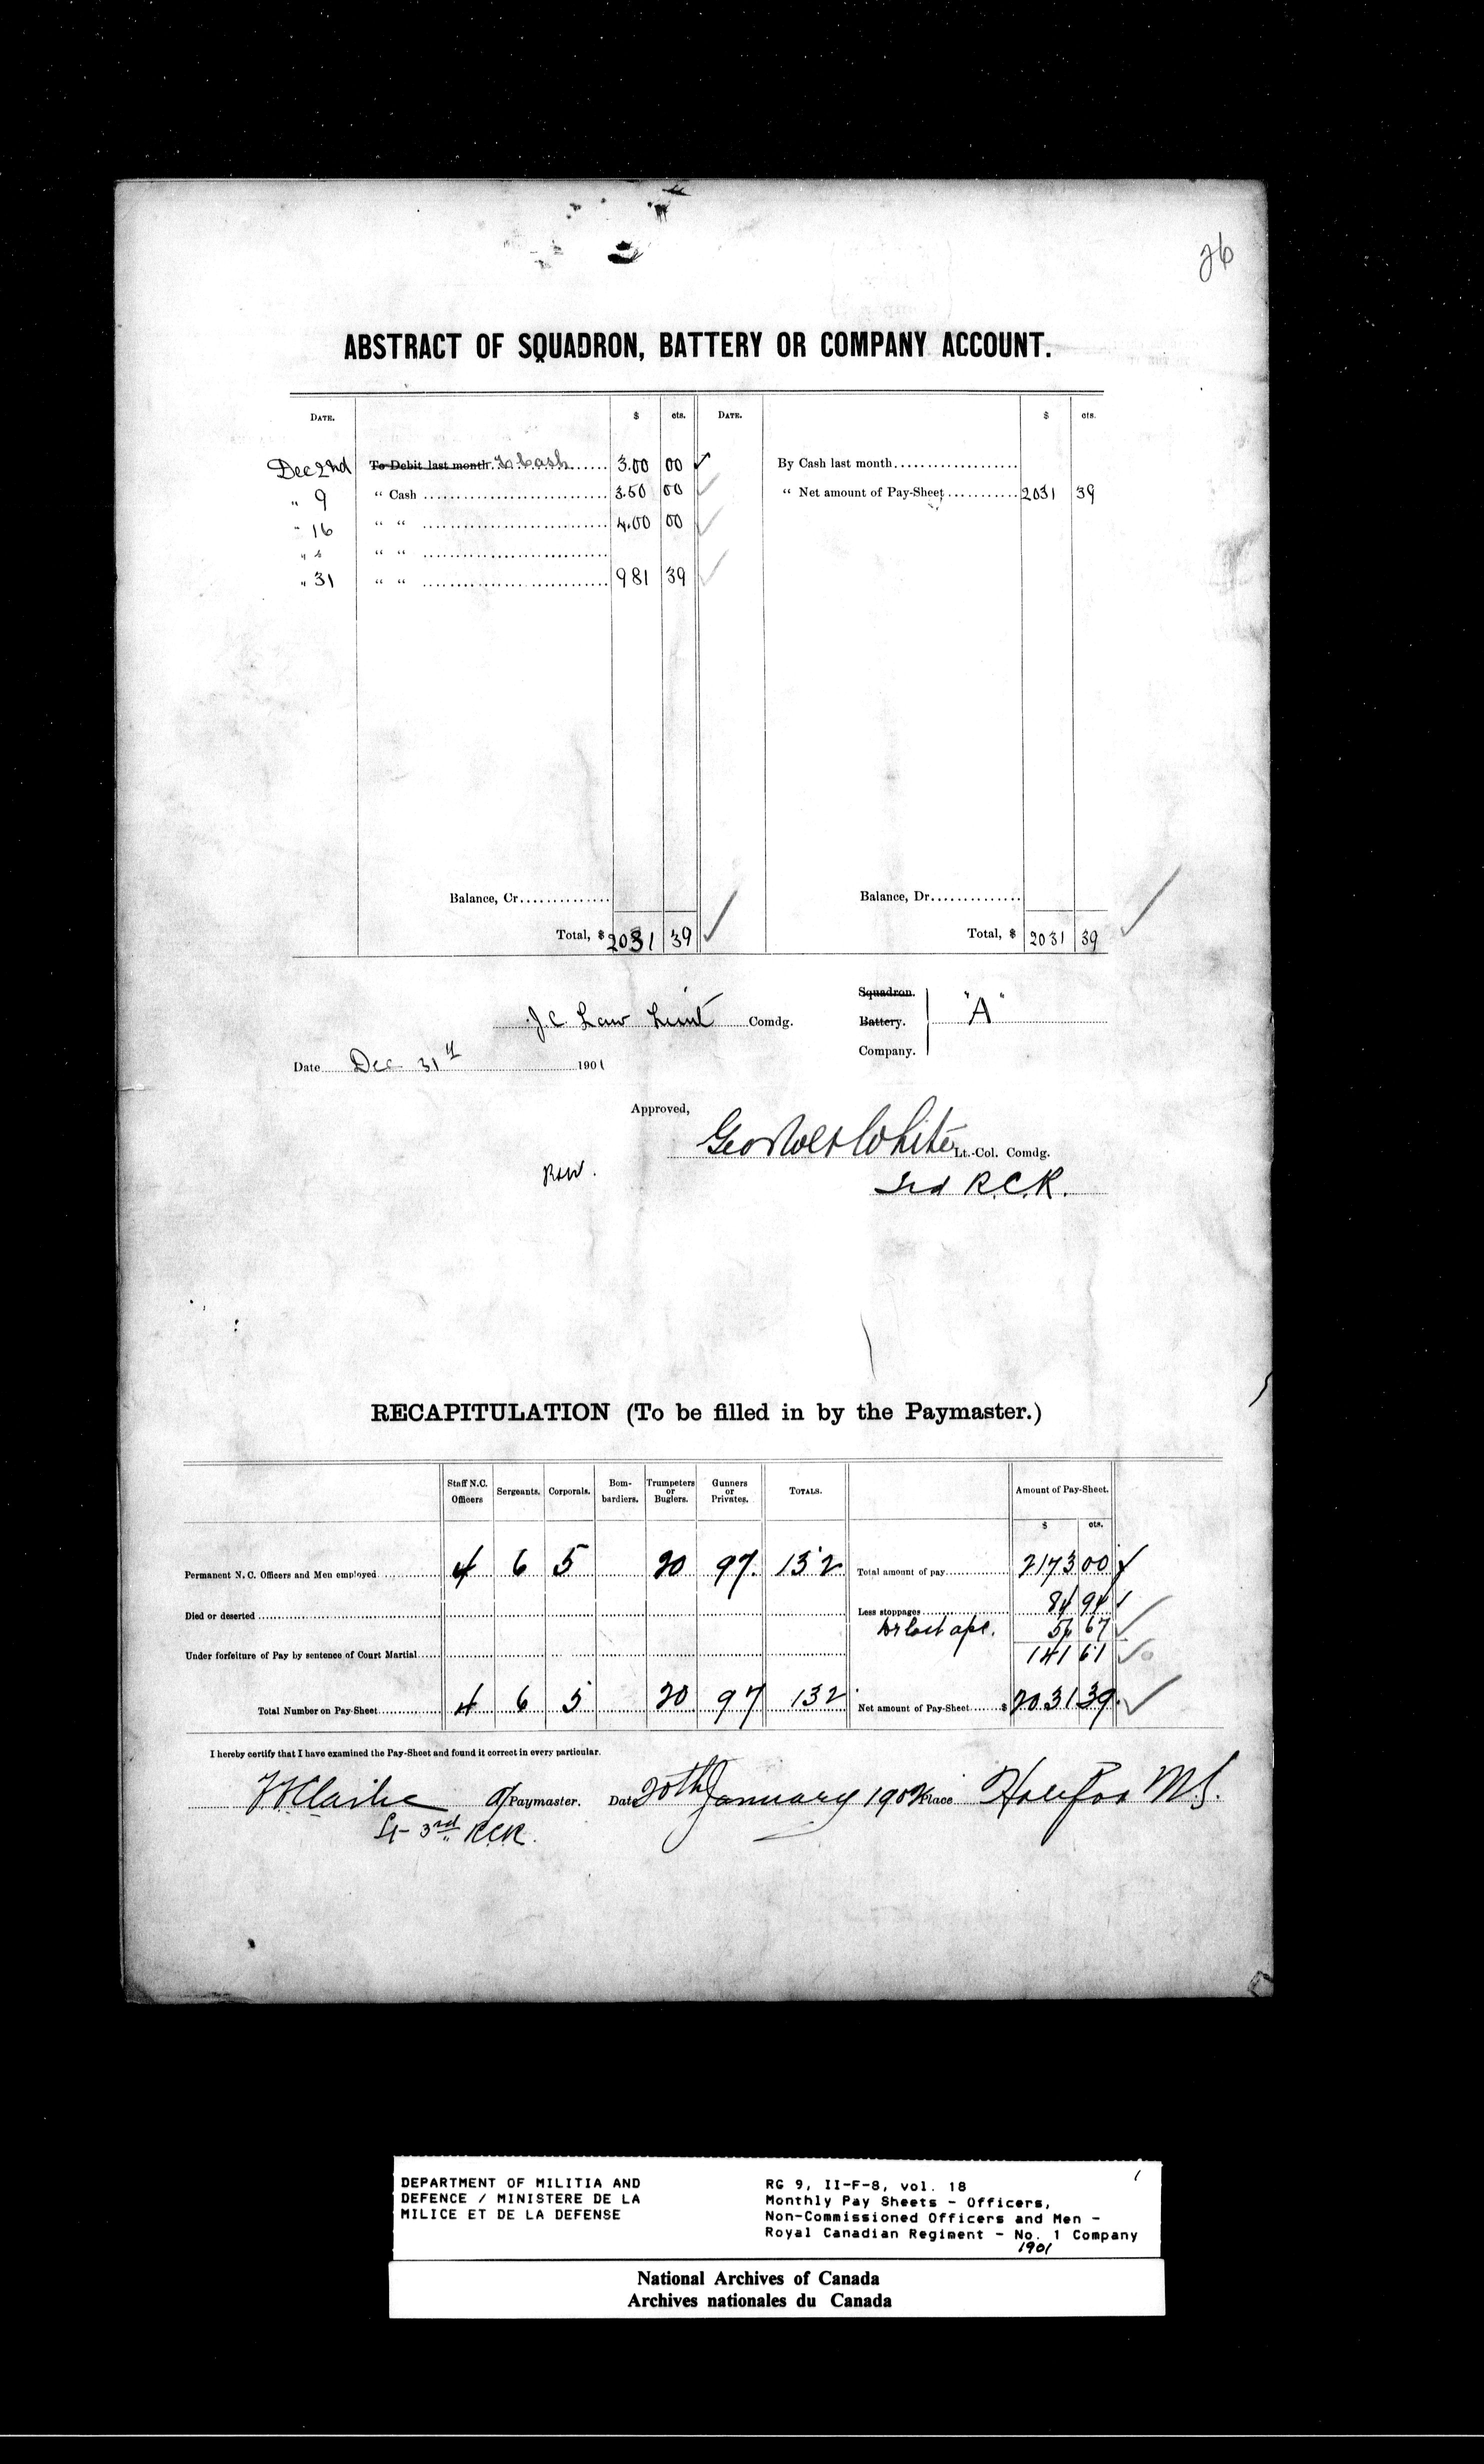 26
ABSTRACT OF SQUADRON, BATTERY OR COMPANY ACCOUNT.
DATE. $ cts. DATE. $ cts.
Dec 2nd To Debit last month. To Cash 3.00 00 By Cash last month
" 9 " Cash 3.50 00 " Net amount of Pay-Sheet 2031 39
" 16 " " 4.00 00
" " " "
" 31 " " 981 39
Balance, Cr. Balance, Dr.
Total, $ 2031 39 Total, $ 2031 39
Squadron.
J.C. Law Lieut Comdg. Battery. "A"
Company.
Date Dec 31st 1901
Approved,
Geo White Lt.-Col. Comdg.
3rd R.C.R.
RECAPITULATION (To be filled in by the Paymaster.)
Staff N.C. Officers Sergeants. Corporals. Bombardiers. Trumpeters or Buglers. Gunners or Privates. TOTALS. Amount of Pay-Sheet.
$ cts.
Permanent N. C. Officers and Men employed 4 6 5 20 97. 132 Total amount of pay 2173 00
Died or deserted Less stoppages 84 94
Dr last 56 67
Under forfeiture of Pay by sentence of Court Martial 141 61
Total Number on Pay-Sheet 4 6 5 20 97 132 Net amount of Pay-Sheet $ 2031 39
I hereby certify that I have examined the Pay-Sheet and found it correct in every particular.
Clarke A/Paymaster. Date 20th January 1902 Place Halifax N.S.
Lt 3rd RCR.
DEPARTMENT OF MILITIA AND
DEFENCE / MINISTERE DE LA
MILICE ET DE LA DEFENSE
RG 9, II-F-8, vol. 18
Monthly Pay Sheets - Officers,
Non-Commissioned Officers and Men -
Royal Canadian Regiment - No. 1 Company
1901
National Archives of Canada
Archives nationales du Canada